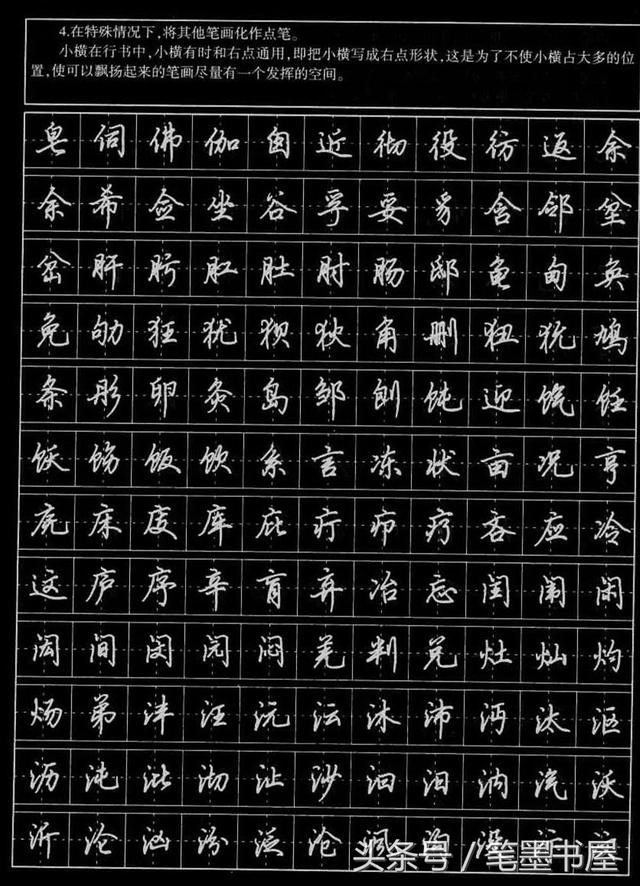 4.在特殊情况下,将其他笔画化作点笔。
小横在行书中,小横有时和右点通用,即把小横写成右点形状,这是为了不使小横占大多的位
置,使可以飘扬起来的笔画尽量有一个发挥的空间。
皂伺佛伽囱近彻役彷返余
余希佥坐谷孚妥豸含邻坌
岔肝肟肛肚肘肠邸龟甸奂
免劬狂犹狈狄角删狃犹鸠
条彤卵灸岛邹刨饨迎饶饪
饫饬饭饮系言冻状亩况亨
庑床庋库庇疔疖疗吝应冷
这庐序辛肓弃冶忘闰闱闲
闳间闵闶闷羌判兑灶灿灼
炀弟沣汪沅沄沐沛沔汰沤
沥沌沘沏沚沙汩汨汭汽沃
沂沦汹汾泛沧沨沟没
头条号/笔墨书屋